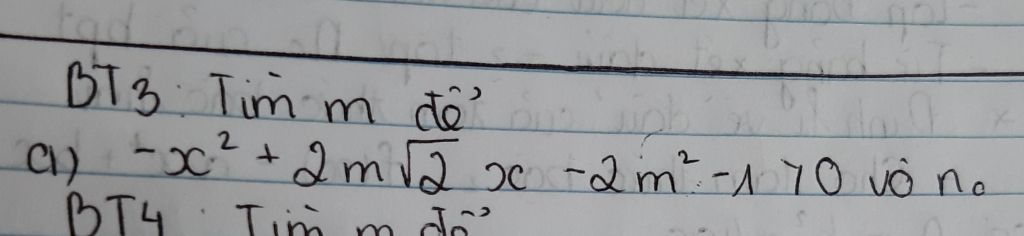 BT3: Tìm m để
a) -x² + 2m√2 x - 2m² - 1 > 0 vô no
BT4: Tìm m để